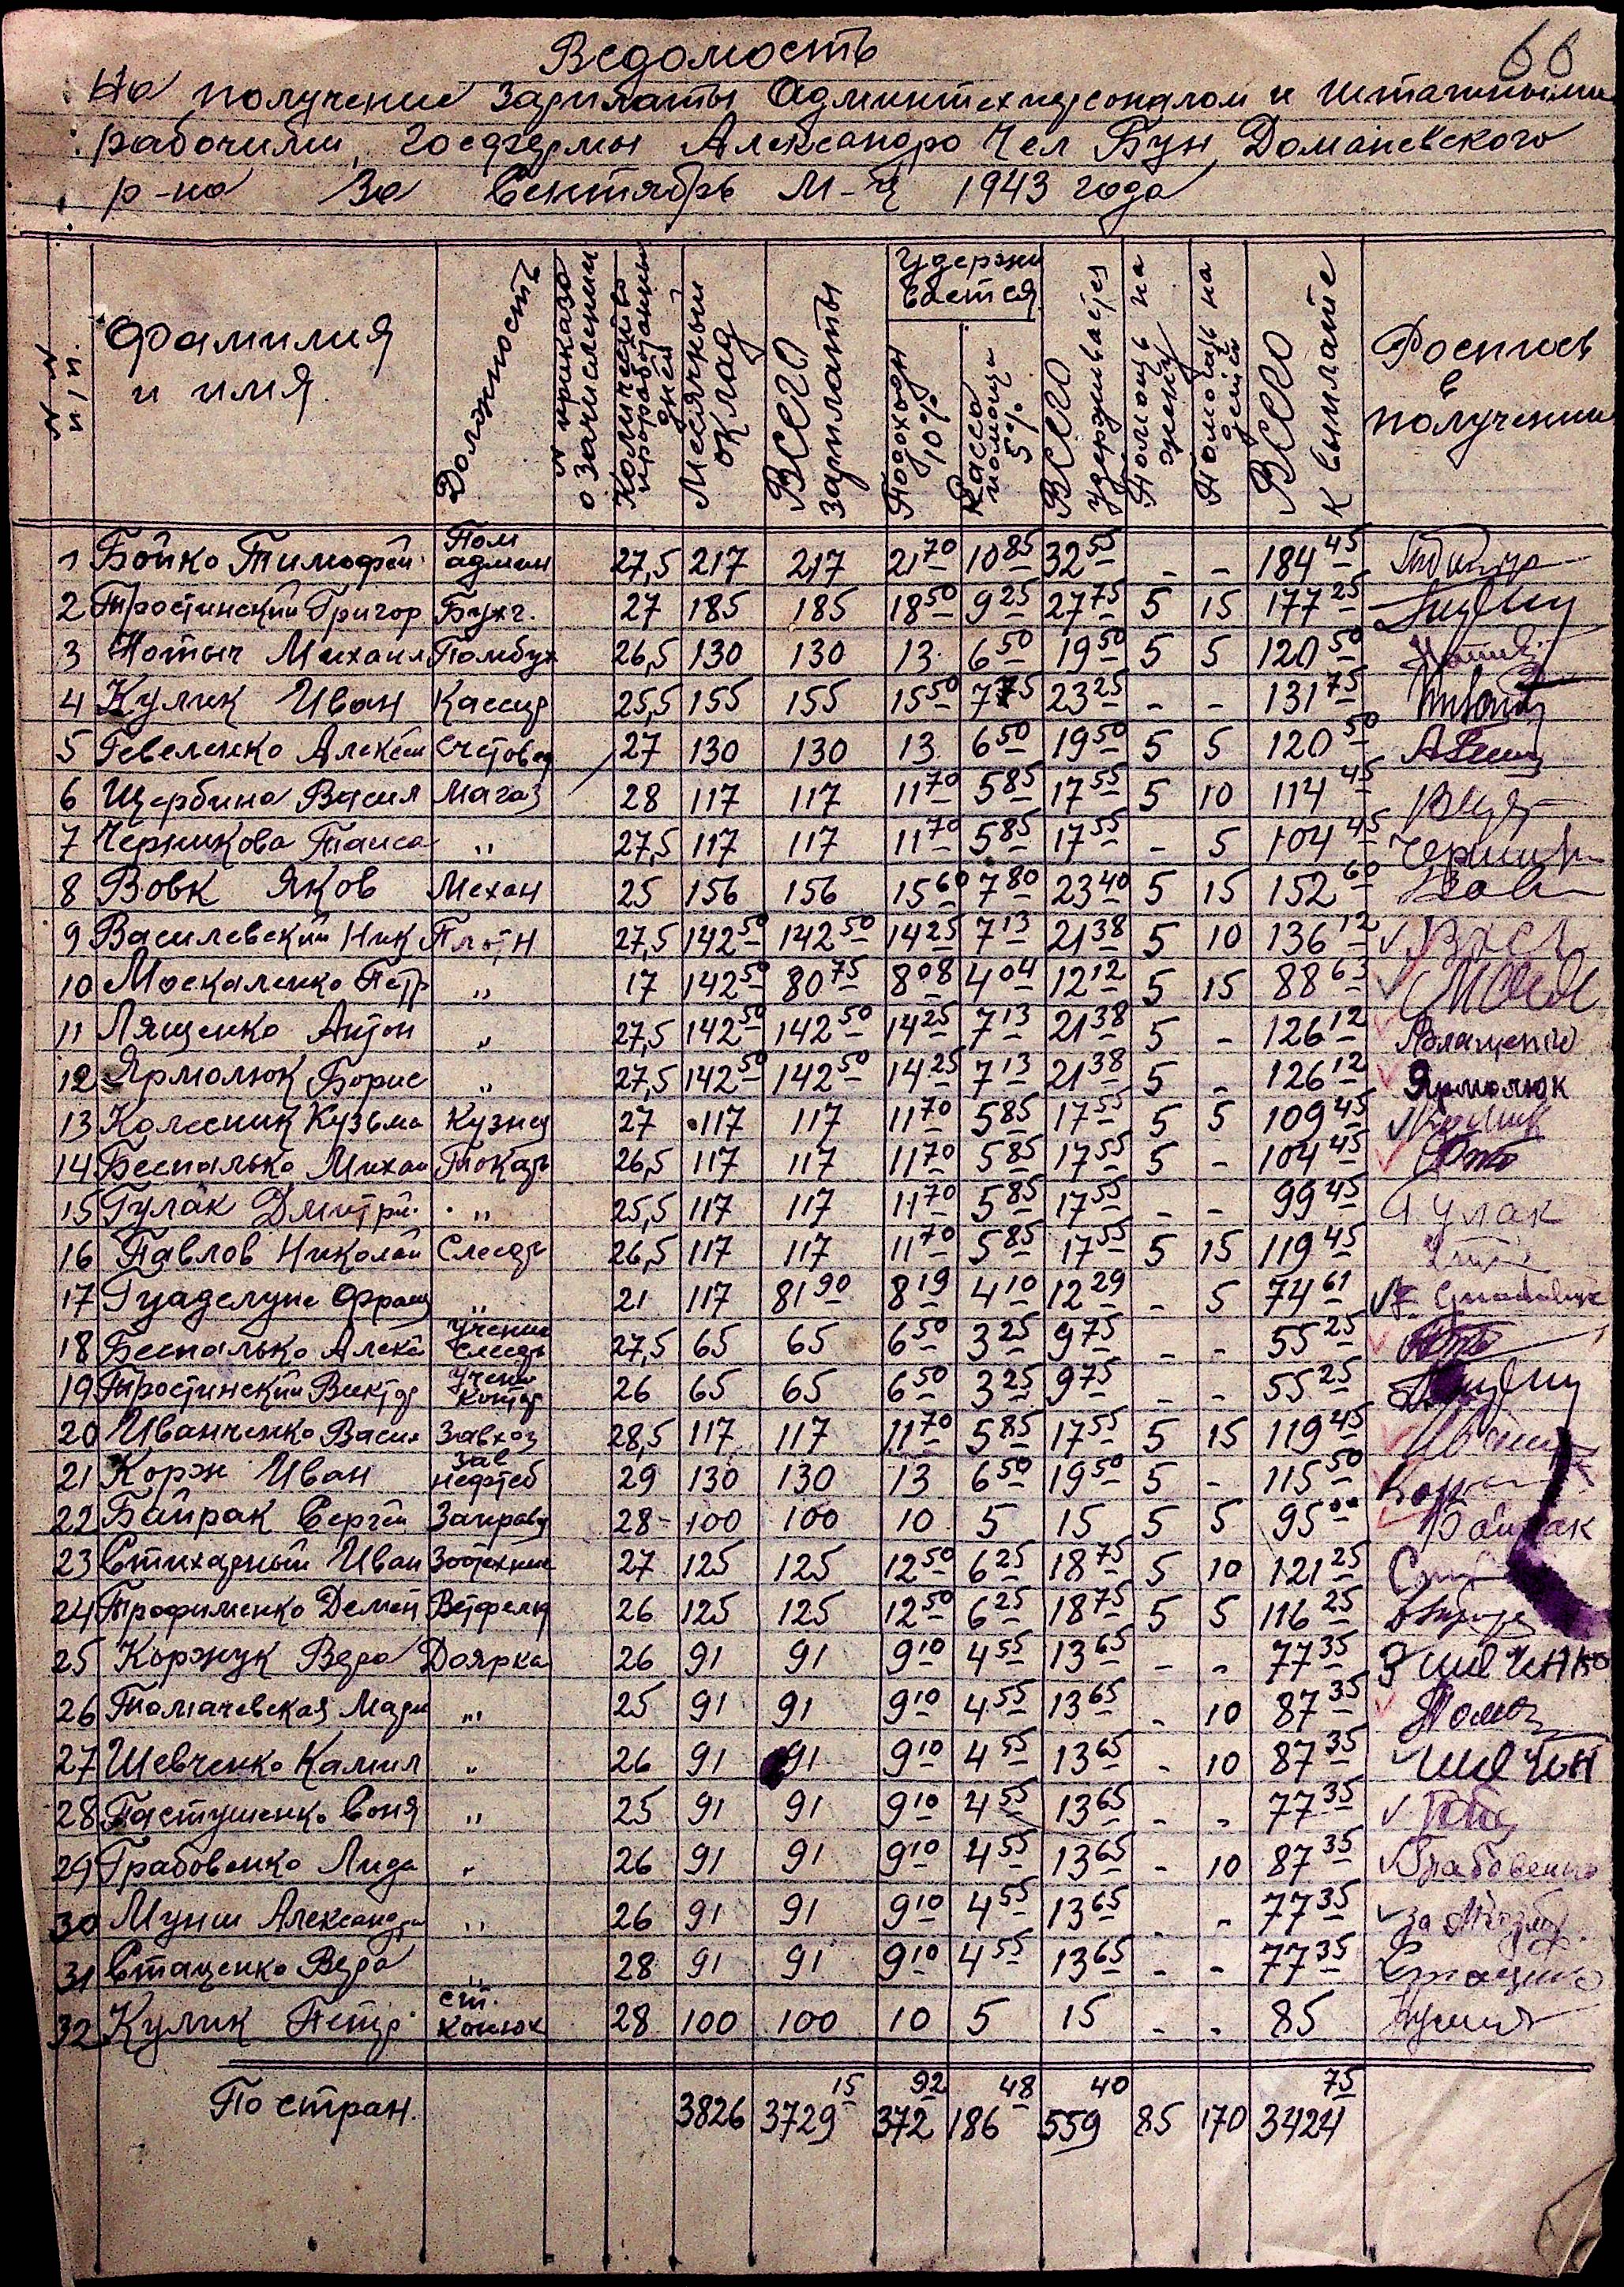 66
Ведомость
На получение Зарплаты Админтехперсоналом и штатными
рабочими, Госфермы Александро Чел Бун Доманевского
р-на За Сентябрь М-ц 1943 года
№№ п/п. Фамилия и имя. Должность № приказа о зачислении Количество проработанных дней Месячный оклад ВСЕГО зарплаты Удержи вается Подоходн 10% Касса помощи 5% ВСЕГО удерживается Помощь на жену Помощь на детей ВСЕГО к выплате Роспись в получении
1 Бойко Тимофей Пом админ 27,5 217 217 21 70 10 85 32 55 - - 184 45
2 Тростинский Григор Бухг. 27 185 185 18 50 9 25 27 75 5 15 177 25
3 Нотыч Михаил Помбух 26,5 130 130 13 6 50 19 50 5 5 120 50
4 Кулик Иван Кассир 25,5 155 155 15 50 7 75 23 25 - - 131 75
5 Гевеленко Алексей Счетовод 27 130 130 13 6 50 19 50 5 5 120 50
6 Щербина Васил Магаз 28 117 117 11 70 5 85 17 55 5 10 114 45
7 Черникова Таиса " 27,5 117 117 11 70 5 85 17 55 - 5 104 45
8 Вовк Яков Механ 25 156 156 15 60 7 80 23 40 5 15 152 60
9 Василевский Ник Плотн 27,5 142 50 142 50 14 25 7 13 21 38 5 10 136 12
10 Москаленко Петр " 17 142 50 80 75 8 08 4 04 12 12 5 15 88 63
11 Лященко Антон " 27,5 142 50 142 50 14 25 7 13 21 38 5 - 126 12
12 Ярмолюк Борис " 27,5 142 50 142 50 14 25 7 13 21 38 5 - 126 12 Ярмолюк
13 Колесник Кузьма Кузнец 27 117 117 11 70 5 85 17 55 5 5 109 45
14 Беспалько Михаи Токарь 26,5 117 117 11 70 5 85 17 55 5 - 104 45
15 Гулак Дмитрий " 25,5 117 117 11 70 5 85 17 55 - - 99 45 Гулак
16 Павлов Николай Слесарь 26,5 117 117 11 70 5 85 17 55 5 15 119 45
17 Гуаделупе Франц " 21 117 81 90 8 19 4 10 12 29 - 5 74 61 F. Guadalupe
18 Беспалько Алекс Ученик слесарь 27,5 65 65 6 50 3 25 9 75 - - 55 25
19 Тростинский Виктор Учени контор 26 65 65 6 50 3 25 9 75 - - 55 25
20 Иванченко Васил Завхоз 28,5 117 117 11 70 5 85 17 55 5 15 119 45
21 Корж Иван Зав нефтеб 29 130 130 13 6 50 19 50 5 - 115 50
22 Байрак Сергей Заправщ 28 - 100 100 10 5 15 5 5 95 00 Байрак
23 Стихарный Иван Зоотехник 27 125 125 12 50 6 25 18 75 5 10 121 25
24 Трофименко Демен Ветфельд 26 125 125 12 50 6 25 18 75 5 5 116 25
25 Коржук Вера Доярка 26 91 91 9 10 4 55 13 65 - - 77 35
26 Томачевская Мари " 25 91 91 9 10 4 55 13 65 - 10 87 35
27 Шевченко Камил " 26 91 91 9 10 4 55 13 65 - 10 87 35
28 Пастушенко Соня " 25 91 91 9 10 4 55 13 65 - - 77 35
29 Грабовенко Лида " 26 91 91 9 10 4 55 13 65 - 10 87 35 Грабовенко
30 Мунш Александра " 26 91 91 9 10 4 55 13 65 - - 77 35
31 Стаценко Вера " 28 91 91 9 10 4 55 13 65 - - 77 35 Стаценко
32 Кулик Петр ст. конюх 28 100 100 10 5 15 - - 85
По стран. 3826 3729 15 372 92 186 48 559 40 85 170 3424 75